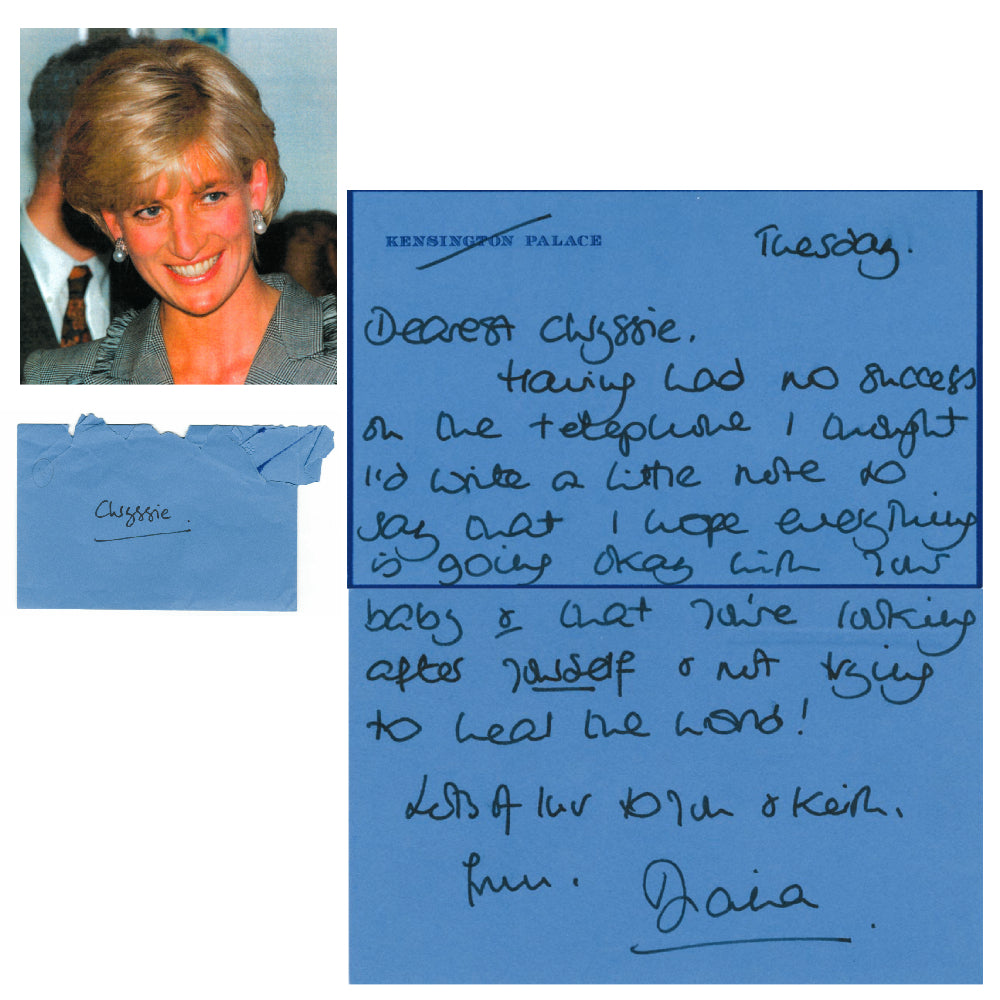 Chryssie.
KENSINGTON PALACE
Tuesday.
Dearest Chryssie.
Having had no success
on the telephone I thought
I'd write a little note to
say that I hope everything
is going okay with your
baby & that you're looking
after yourself & not trying
to heal the world!
Lots of luv to you & Keith.
from.
Diana.